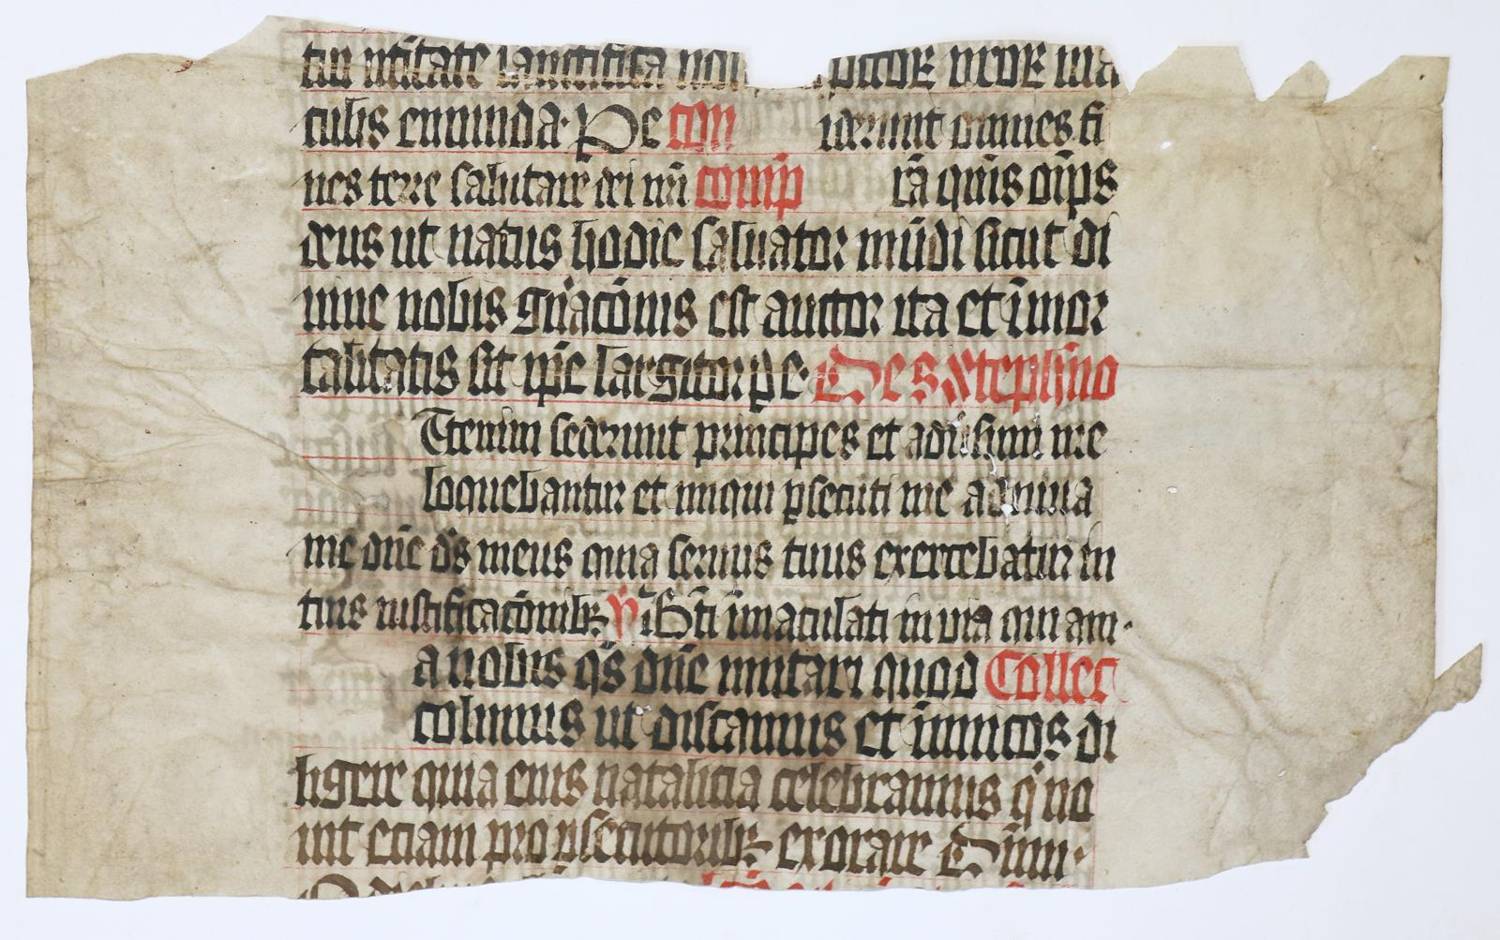 tui nt̄itate sanctifica nos peccatoꝝ nr̄oꝝ ma
culis emunda· Pe com iderunt omnes fi
nes terre salutare dei nr̄i comp̄ ta q̄uis om̄ps
deus ut natus hodie saluator mūdi sicut di
uine nobis gn̄acōnis est auctor ita et īmor
talitatis sit ip̄e largitor ꝑ e· De s Stephn̄o
Etenim sederunt principes et adūsum me
loquebantur et iniqui ꝑsecuti me adiuua
me dn̄e ds̄ meus quia seruus tuus exercebatur in
tuis iustificacōnibꝫ v̄ Bt̄i īmaculati in uia qui am·
a nobis qs̄ dn̄e imitari quod Collec
colimus ut discamus et īimicos di
ligere quia eius natalicia celebramus q no
uit eciam pro ꝑsecutoribꝫ exorare Dnm̄·